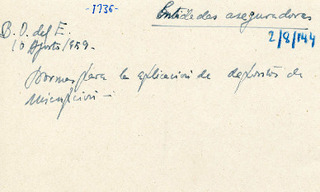 -1736-
Entidades aseguradoras
B. O. del E.
10 Agosto/959-
2/8/144
Normas para la aplicación de depósitos de
inscripción -